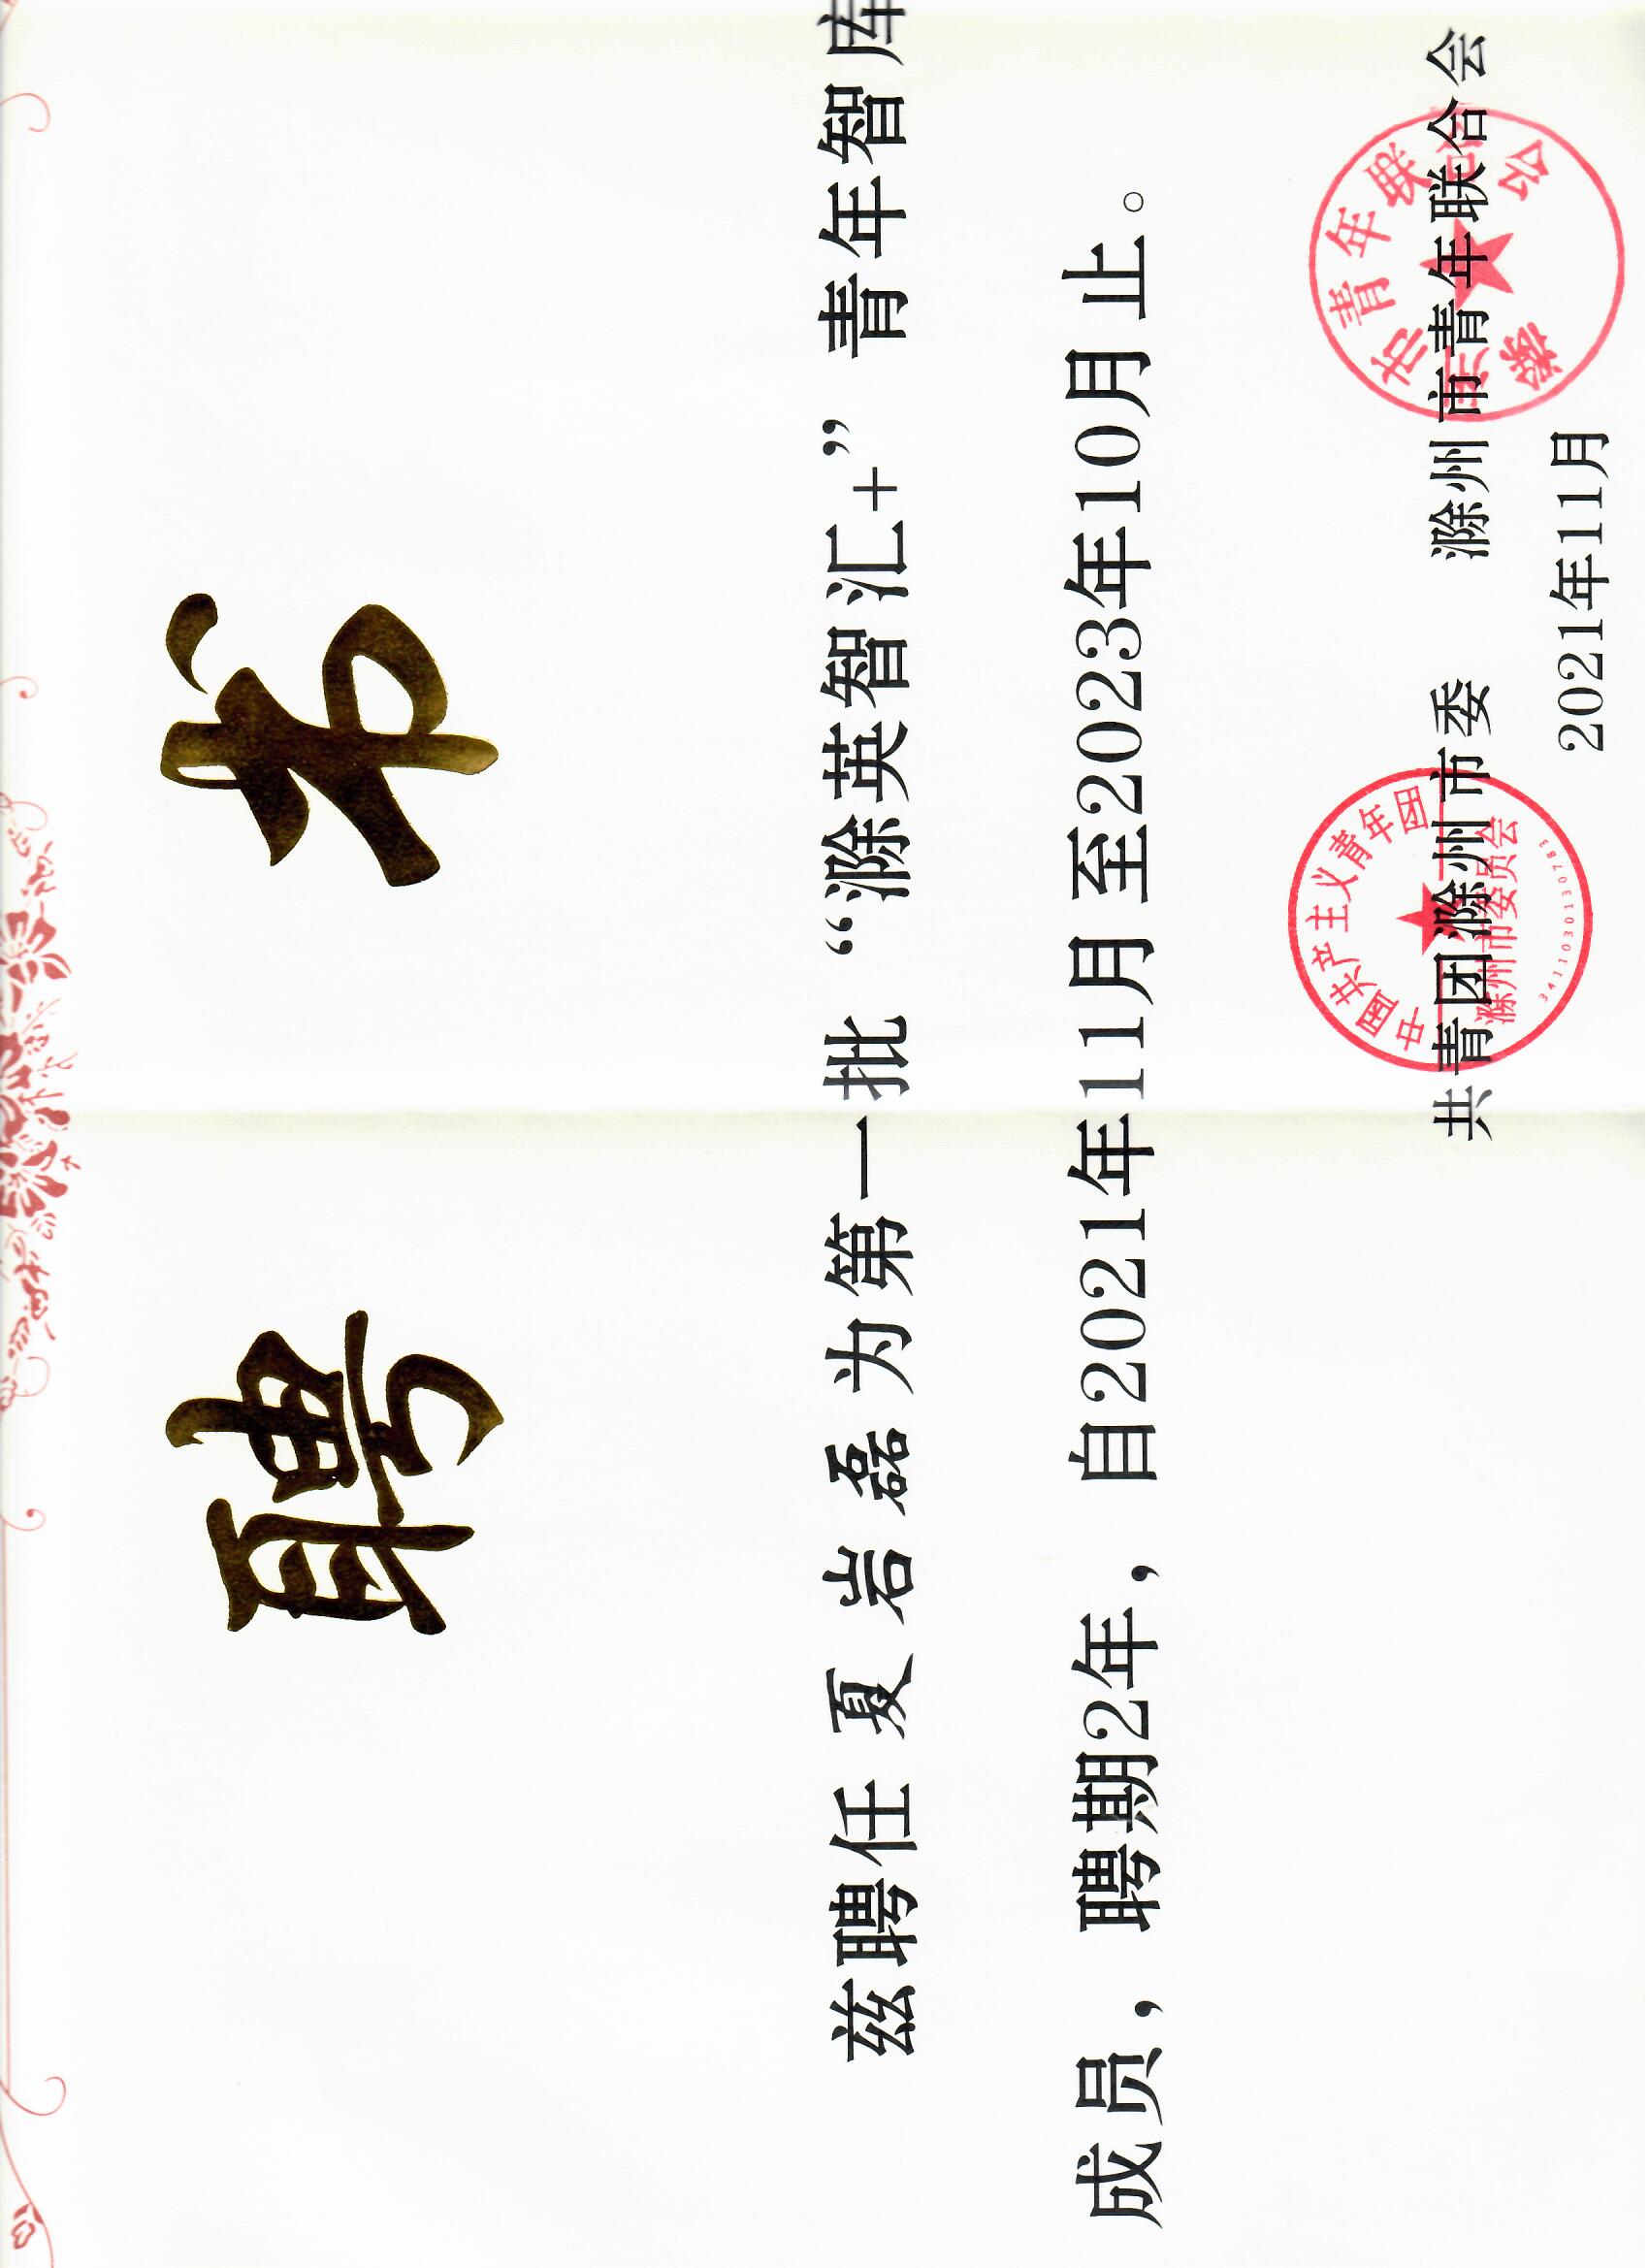 聘书
兹聘任 夏岩磊 为第一批“滁英智汇+”青年智库
成员，聘期2年，自2021年11月至2023年10月止。
共青团滁州市委 滁州市青年联合会
2021年11月
中国共产主义青年团
滁州市委员会
3411030130783
滁州市青年联合会